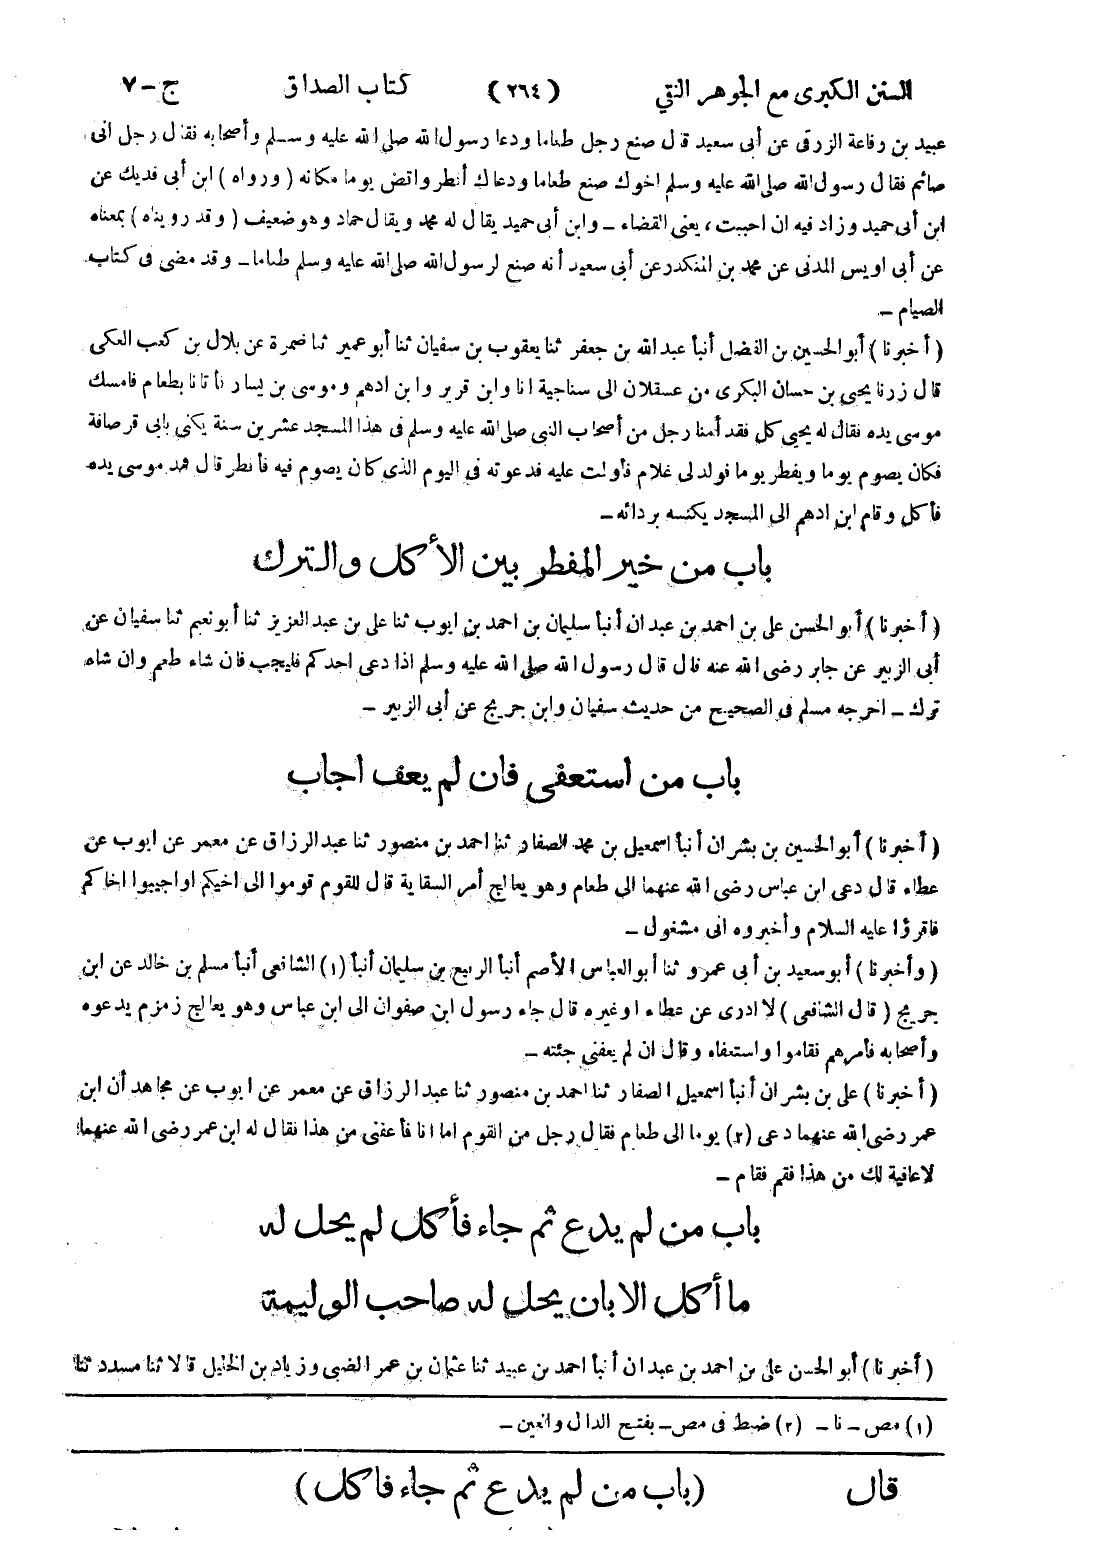 السنن الكبرى مع الجوهر النقي (٢٦٤) كتاب الصداق ج-٧
عبيد بن رفاعة الزرقى عن أبى سعيد قال صنع رجل طعاما ودعا رسول الله صلى الله عليه وسلم وأصحابه فقال رجل انى
صائم فقال رسول الله صلى الله عليه وسلم اخوك صنع طعاما ودعاك أفطر واقض يوما مكانه (ورواه) ابن أبى فديك عن
ابن أبى حميد وزاد فيه ان احببت، يعنى القضاء - وابن أبى حميد يقال له محمد ويقال حماد وهو ضعيف (وقد رويناه) بمعناه
عن أبى اويس المدنى عن محمد بن المنكدر عن أبى سعيد أنه صنع لرسول الله صلى الله عليه وسلم طعاما - وقد مضى فى كتاب
الصيام -
(أخبرنا) أبو الحسين بن الفضل أنبأ عبد الله بن جعفر ثنا يعقوب بن سفيان ثنا أبو عمير ثنا ضمرة عن بلال بن كعب العكى
قال زرنا يحيى بن حسان البكرى من عسقلان الى سناجية انا وابن قرير وابن ادهم وموسى بن يسار فأتانا بطعام فامسك
موسى يده فقال له يحيى كل فقد أمنا رجل من أصحاب النبى صلى الله عليه وسلم فى هذا المسجد عشرين سنة يكنى بابى قرصافة
فكان يصوم يوما ويفطر يوما فولد لى غلام فأولت عليه فدعوته فى اليوم الذى كان يصوم فيه فأفطر قال فمد موسى يده
فأكل وقام ابن ادهم الى المسجد يكنسه بردائه -
باب من خير المفطر بين الأكل والترك
(أخبرنا) أبو الحسن على بن احمد بن عبدان أنبأ سليمان بن احمد بن ايوب ثنا على بن عبد العزيز ثنا أبو نعيم ثنا سفيان عن
أبى الزبير عن جابر رضى الله عنه قال قال رسول الله صلى الله عليه وسلم اذا دعى احدكم فليجب فان شاء طعم وان شاء
ترك - اخرجه مسلم فى الصحيح من حديث سفيان وابن جريج عن أبى الزبير -
باب من استعفى فان لم يعف اجاب
(أخبرنا) أبو الحسين بن بشران أنبأ اسمعيل بن محمد الصفار ثنا احمد بن منصور ثنا عبد الرزاق عن معمر عن ايوب عن
عطاء قال دعى ابن عباس رضى الله عنهما الى طعام وهو يعالج أمر السقاية قال للقوم قوموا الى اخيكم او اجيبوا اخاكم
فاقرؤا عليه السلام وأخبروه انى مشغول -
(وأخبرنا) أبو سعيد بن أبى عمرو ثنا أبو العباس الأصم أنبأ الربيع بن سليمان أنبأ (١) الشافعى أنبأ مسلم بن خالد عن ابن
جريج (قال الشافعى) لا ادرى عن عطاء او غيره قال جاء رسول ابن صفوان الى ابن عباس وهو يعالج زمزم يدعوه
وأصحابه فأمرهم فقاموا واستعفاه وقال ان لم يعفنى جئته -
(أخبرنا) على بن بشران أنبأ اسمعيل الصفار ثنا احمد بن منصور ثنا عبد الرزاق عن معمر عن ايوب عن مجاهد أن ابن
عمر رضى الله عنهما دعى (٢) يوما الى طعام فقال رجل من القوم اما انا فأعفنى من هذا فقال له ابن عمر رضى الله عنهما
لا عافية لك من هذا فقم فقام -
باب من لم يدع ثم جاء فأكل لم يحل له
ما أكل الا بان يحل له صاحب الوليمة
(أخبرنا) أبو الحسن على بن احمد بن عبدان أنبأ احمد بن عبيد ثنا عثمان بن عمر الضبى وزياد بن الخليل قالا ثنا مسدد ثنا
(١) مص - نا - (٢) ضبط فى مص - بفتح الدال والعين -
قال (باب من لم يدع ثم جاء فاكل)